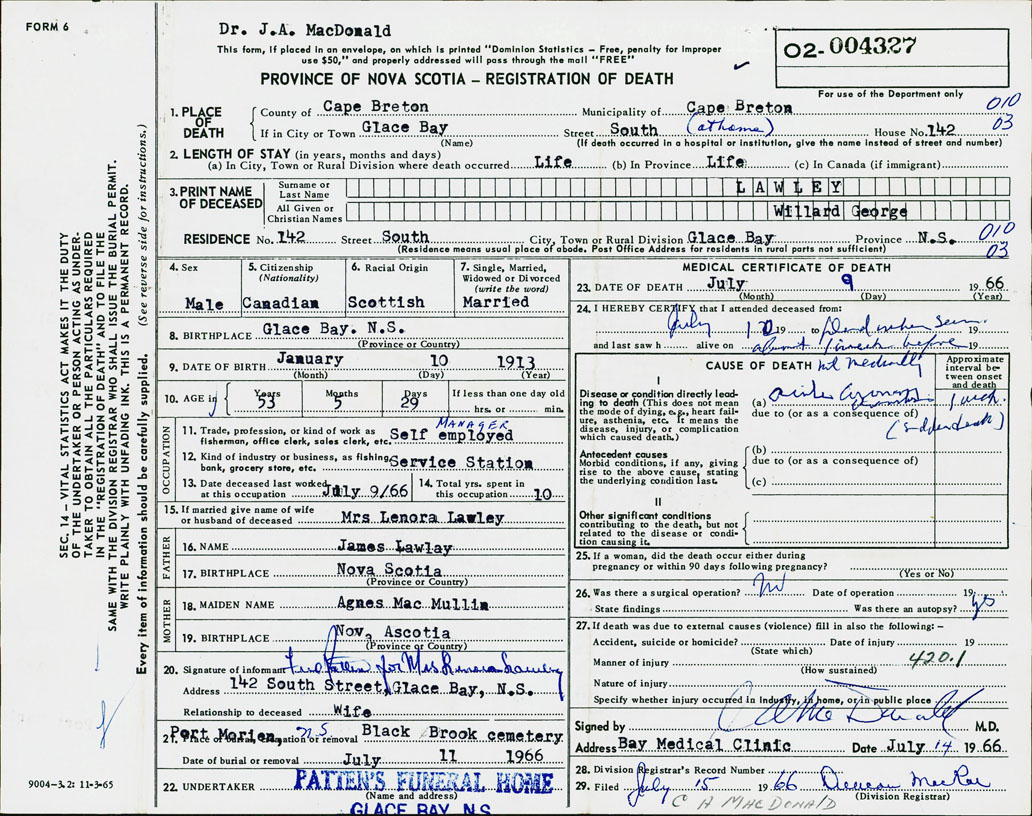 FORM 6
Dr. J.A. MacDonald
This form, if placed in an envelope, on which is printed "Dominion Statistics – Free, penalty for improper
use $50," and properly addressed will pass through the mail "FREE"
PROVINCE OF NOVA SCOTIA – REGISTRATION OF DEATH
02-004327
For use of the Department only
SEC. 14 – VITAL STATISTICS ACT MAKES IT THE DUTY
OF THE UNDERTAKER OR PERSON ACTING AS UNDER-
TAKER TO OBTAIN ALL THE PARTICULARS REQUIRED
IN THE "REGISTRATION OF DEATH" AND TO FILE THE
SAME WITH THE DIVISION REGISTRAR WHO SHALL ISSUE THE BURIAL PERMIT.
WRITE PLAINLY WITH UNFADING INK. THIS IS A PERMANENT RECORD.
Every item of information should be carefully supplied. (See reverse side for instructions.)
1. PLACE OF DEATH
County of Cape Breton Municipality of Cape Breton 010
If in City or Town Glace Bay Street South (at home) House No. 142 03
(Name) (If death occurred in a hospital or institution, give the name instead of street and number)
2. LENGTH OF STAY (in years, months and days)
(a) In City, Town or Rural Division where death occurred Life (b) In Province Life (c) In Canada (if immigrant)
3. PRINT NAME OF DECEASED
Surname or Last Name LAWLEY
All Given or Christian Names Willard George
RESIDENCE No. 142 Street South City, Town or Rural Division Glace Bay Province N.S. 010
(Residence means usual place of abode. Post Office Address for residents in rural parts not sufficient) 03
4. Sex
Male
5. Citizenship (Nationality)
Canadian
6. Racial Origin
Scottish
7. Single, Married, Widowed or Divorced (write the word)
Married
8. BIRTHPLACE Glace Bay. N.S.
(Province or Country)
9. DATE OF BIRTH January 10 1913
(Month) (Day) (Year)
10. AGE in Years Months Days If less than one day old
53 5 29 hrs. or min.
OCCUPATION
MANAGER
11. Trade, profession, or kind of work as fisherman, office clerk, sales clerk, etc. Self employed
12. Kind of industry or business, as fishing, bank, grocery store, etc. Service Station
13. Date deceased last worked at this occupation July 9/66
14. Total yrs. spent in this occupation 10
15. If married give name of wife or husband of deceased Mrs Lenora Lawley
FATHER
16. NAME James Lawlay
17. BIRTHPLACE Nova Scotia
(Province or Country)
MOTHER
18. MAIDEN NAME Agnes Mac Mullin
19. BIRTHPLACE Nov, Ascotia
(Province or Country)
20. Signature of informant for Mrs Lenora Lawley
Address 142 South Street, Glace Bay, N.S.
Relationship to deceased Wife
21. Place of burial, cremation or removal Port Morien, N.S Black Brook cemetery
Date of burial or removal July 11 1966
22. UNDERTAKER PATTEN'S FUNERAL HOME
(Name and address)
GLACE BAY, N.S.
9004-3.2: 11-3-65
MEDICAL CERTIFICATE OF DEATH
23. DATE OF DEATH July 9 1966
(Month) (Day) (Year)
24. I HEREBY CERTIFY that I attended deceased from:
July 19 to Dead when seen 19
and last saw h alive on about 1 week before 19
CAUSE OF DEATH not medically
Approximate interval between onset and death
I
Disease or condition directly leading to death (This does not mean the mode of dying, e.g., heart failure, asthenia, etc. It means the disease, injury, or complication which caused death.)
(a)
due to (or as a consequence of)
Antecedent causes
Morbid conditions, if any, giving rise to the above cause, stating the underlying condition last.
(b)
due to (or as a consequence of)
(c)
II
Other significant conditions contributing to the death, but not related to the disease or condition causing it.
25. If a woman, did the death occur either during pregnancy or within 90 days following pregnancy?
(Yes or No)
26. Was there a surgical operation? No Date of operation 19
State findings Was there an autopsy? yes
27. If death was due to external causes (violence) fill in also the following:–
Accident, suicide or homicide? Date of injury 19
(State which)
Manner of injury 420.1
(How sustained)
Nature of injury
Specify whether injury occurred in industry, in home, or in public place
Signed by MacDonald M.D.
Address Bay Medical Clinic Date July 14 1966
28. Division Registrar's Record Number
29. Filed July 15 1966 Duncan MacRae
(Division Registrar)
C A MACDONALD